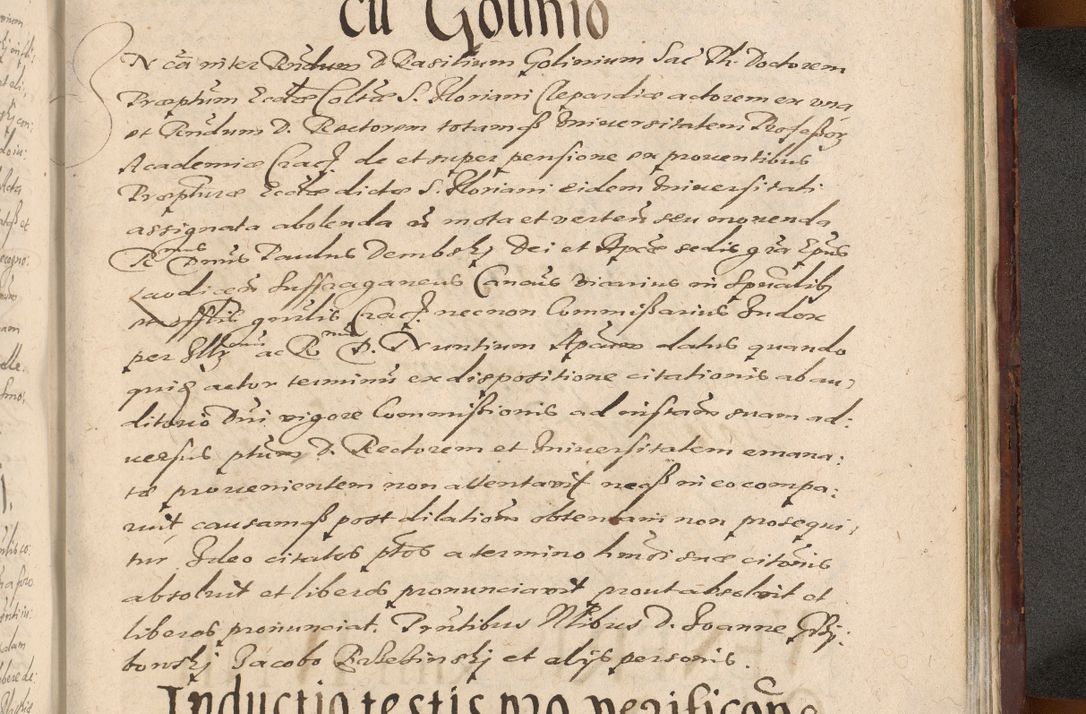 cū Golinio
N cā inter Rndum D Basilium Golinium Sac Th. Doctorem
Præptum Eccliæ Coltæ S. Floriani Clepardiæ actorem ex una
et Rndum D. Rectorem totamq Universitatem Professor
Academiæ Crac de et super pensione ex proventibus
Præpturæ Eccliæ dictæ S. Floriani eidem Universitati
assignata abolenda
mota et verten seu movenda
Rmus Dnus Paulus Dembskj Dei et Aplicæ sedis gra Epus
Laodicen Suffraganeus Canous Vicarius in Spualib
et offtis gnrlis Crac necnon Commissarius Iudex
per Illmum ac Rmum D. Nuntium Aplicum datus quando
quidē actor terminū ex dispositione citationis ab au,
ditorio Dni vigore Commissionis ad instam suam ad:
versus ptum D. Rectorem et Universitatem emana:
tæ provenientem non attentavit neq in eo compa:
ruit causamq post dilation obtentam non prosequi,
tur Ideo citatos ptos a termino hmdi suæ citonis
absolvit et liberos pronunciavit prout absolvit et
liberos pronunciat. Prntibus Nlibus D. Joanne
bowskj Jacobo et alijs personis.
Inductio testis pro verificaōn